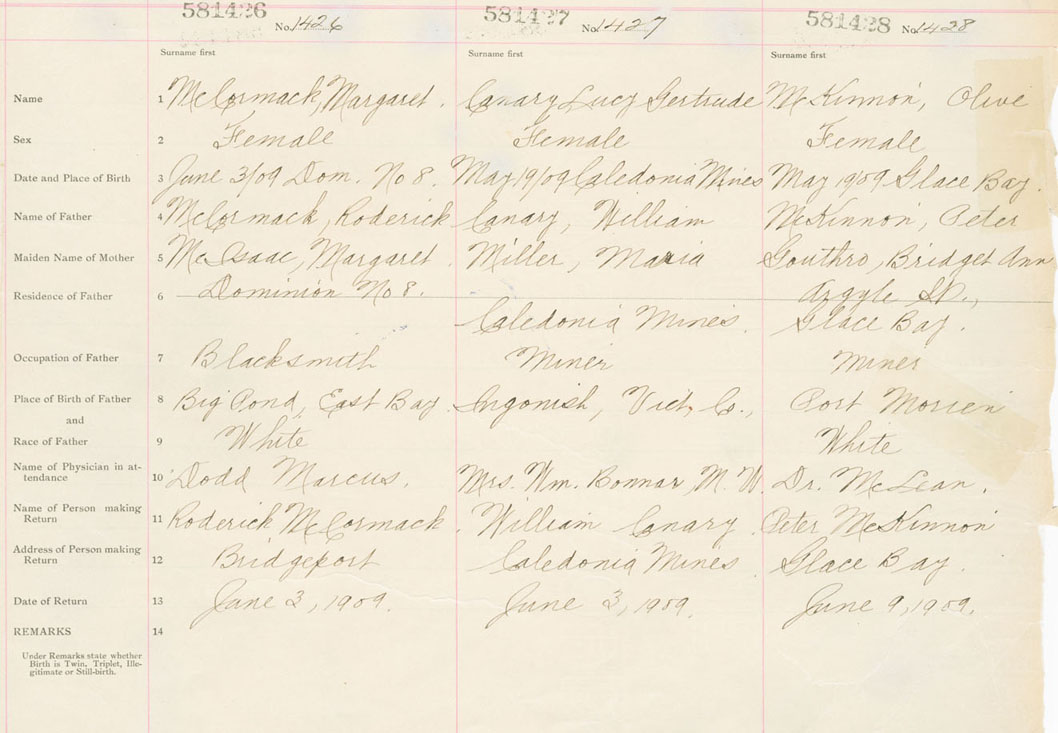 581426 No. 1426 581427 No. 1427 581428 No. 1428
Surname first Surname first Surname first
Name 1 McCormack, Margaret. Canary Lucy Gertrude McKinnon, Olive
Sex 2 Female Female Female
Date and Place of Birth 3 June 3/09 Dom. No 8. May 19/09 Caledonia Mines May 1909 Glace Bay.
Name of Father 4 McCormack, Roderick Canary, William McKinnon, Peter
Maiden Name of Mother 5 McIsaac, Margaret. Miller, Maria Gouthro, Bridget Ann
Residence of Father 6 Dominion No 8. Argyle St.,
Caledonia Mines. Glace Bay.
Occupation of Father 7 Blacksmith Miner Miner
Place of Birth of Father 8 Big Pond, East Bay. Ingonish, Vict. Co., Port Morien
and
Race of Father 9 White White
Name of Physician in at-
tendance 10 Dodd Marcus. Mrs. Wm. Bonnar, M. W. Dr. McLean.
Name of Person making
Return 11 Roderick McCormack. William Canary. Peter McKinnon
Address of Person making
Return 12 Bridgeport Caledonia Mines. Glace Bay.
Date of Return 13 June 3, 1909. June 3, 1909. June 9, 1909.
REMARKS 14
Under Remarks state whether
Birth is Twin, Triplet, Ille-
gitimate or Still-birth.